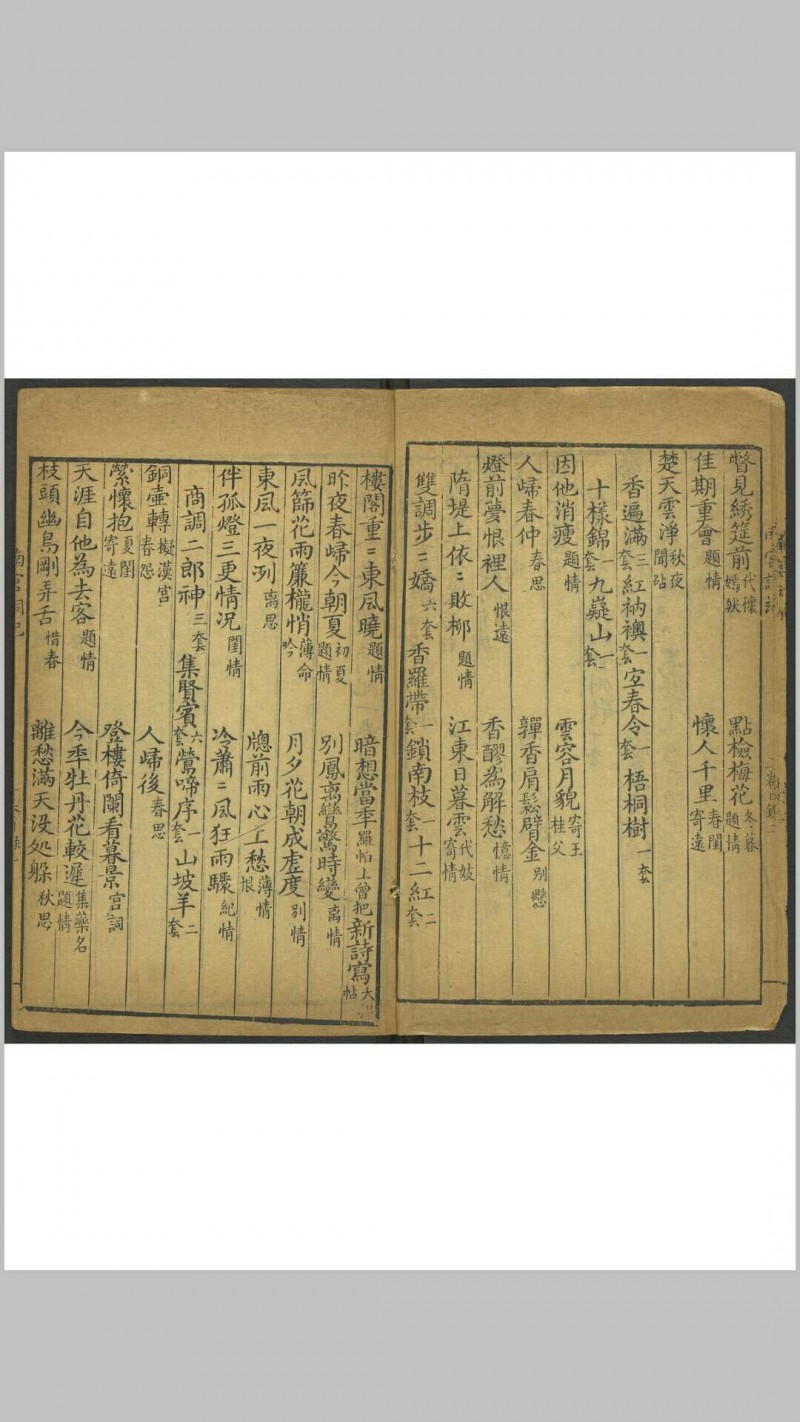 瞥見綉筵前 代懷嫣然 點檢梅花 冬暮題情
佳期重會 題情 懷人千里 春閨寄遠
楚天雲淨 秋夜聞砧
香遍滿 三套 紅衲襖 一套 宜春令 一套 梧桐樹 一套
十樣錦 一套 九嶷山 一套
因他消瘦 題情 雲容月貌 寄王桂父
人㱕春仲 春思 嚲香肩鬆臂金 別懸
燈前夢恨裡人 恨遠 香醪為解愁 憶情
隋堤上依〻敗柳 題情 江東日暮雲 代妓寄情
雙調步〻嬌 六套 香羅帶 一套 鎖南枝 一套 十二紅 二套
樓閣重〻東風曉 題情 暗想當年羅帕上曾把新詩寫
昨夜春㱕今朝夏 初夏題情 別鳳离鸞驚時變 离情
風篩花雨簾櫳悄 薄命吟 月夕花朝成虛度 別情
東風一夜冽 离思 牕前雨心上愁 薄情恨
伴孤燈三更情况 閨情 冷蕭〻風狂雨驟 紀情
商調二郎神 三套 集賢賓 六套 鶯啼序 一套 山坡羊 二套
銅壺轉 擬漢宮春怨 人㱕後 春思
縈懷抱 夏閨寄遠 登樓倚闌看暮景 宮詞
天涯自他為去客 題情 今年牡丹花較遲 集藥名題情
枝頭幽鳥剛弄舌 惜春 離愁滿天没処躲 秋思